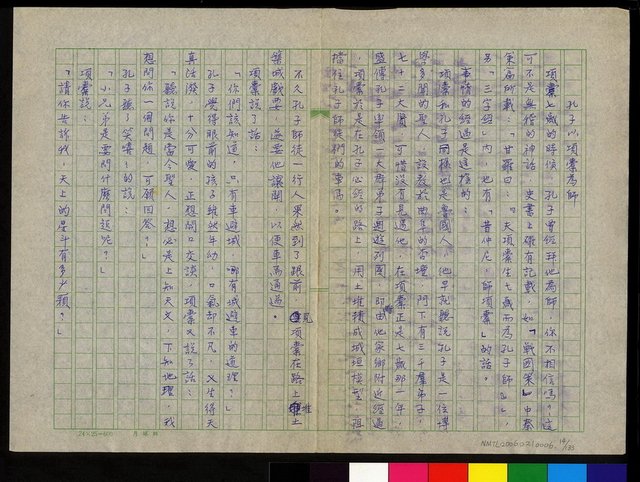 孔子以項橐為師
項橐七歲的時候，孔子曾經拜他為師，你不相信嗎？這
可不是無稽的神話，史書上確有記載，如「戰國策」中秦
策篇所載：「甘羅曰：『夫項橐生七歲而為孔子師』」，
另「三字經」內，也有「昔仲尼，師項橐」的話。
事情的經過是這樣的：
項橐和孔子同樣也是魯國人，他早就聽說孔子是一位博
學多聞的聖人，設教於曲阜的杏壇，門下有三千羣弟子，
七十二大賢，可惜沒有見過他，在項橐正是七歲那一年，
盛傳孔子率領一大群弟子週遊列國，即由他家鄉附近經過
，項橐於是在孔子必經的路上，用土堆積成城垣模型，阻
擋住孔子師徒們的車馬。
不久孔子師徒一行人果然到了跟前，見項橐在路上堆土
築城戲耍，並要他讓開，以便車馬通過。
項橐說了話：
「你們該知道，只有車避城，哪有城避車的道理？」
孔子覺得眼前的孩子雖然年幼，口氣却不凡，又生得天
真活潑，十分可愛，正想開口交談，項橐又說了話：
「聽說你是當今聖人，想必是上知天文，下知地理，我
想問你一個問題，可願回答？」
孔子聽了笑嘻嘻的說：
「小兄弟是要問什麼問題呢？」
項橐說：
「請你告訴我，天上的星斗有多少顆？」
24×25=600
NMTL20060210006
14/133